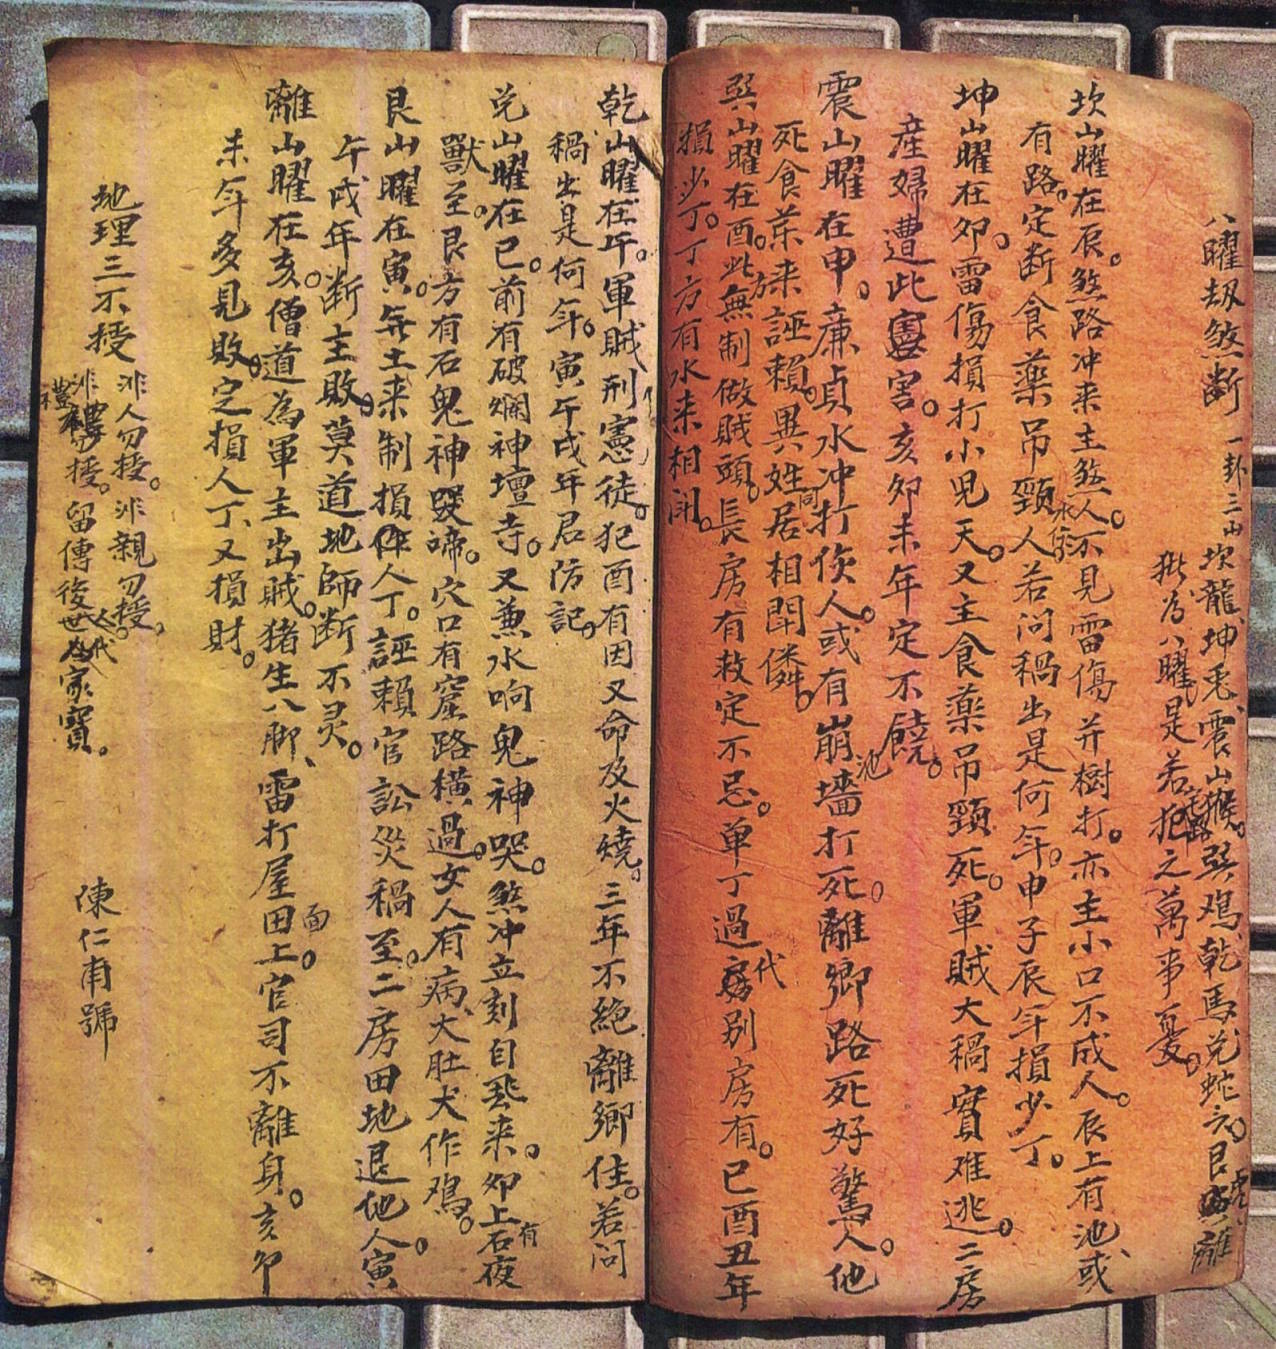 八曜刼煞断 一卦三山 坎龍坤兎震山猴。巽鸡乾馬兑蛇六。艮虎離
批为八曜是若犯之萬事憂。
坎山曜在辰。煞路冲来主煞人。不見雷傷并樹打。亦主小口不成人。辰上有池或
有路。定断食藥吊頸人若问禍出是何年。申子辰年損少丁。
坤山曜在卯。雷傷損打小児夭。又主食藥吊頸死。軍賊大禍實难逃。二房
產婦遭此害。亥卯未年定不饒。
震山曜在申。廉貞水冲打傷人。或有崩墻打死。離鄉路死好驚人。他
死食葉来誣賴。異姓同居相閗憐。
巽山曜在酉。此方無制做賊頭。長房有救定不忌。单丁過代房别房有。巳酉丑年
損少丁。丁方有水来相闲。
乾山曜在午。軍賊刑憲徒。犯酉有因又命及火燒。三年不絶離鄉住。若问
禍出是何年。寅午戌年君防記。
兑山曜在巳。前有破爛神壇寺。又兼水响鬼神哭。煞冲立刻自恶来。卯上有石夜
獸至。艮方有石鬼神哭啼。穴口有窟路横過。女人有病大肚犬作鸡。
艮山曜在寅。無土来制損人丁。誣賴官訟災禍至。二房田地退他人。寅
午戌年断主敗。莫道地師断不灵。
離山曜在亥。僧道為軍主出賊。猪生八脚、雷打屋面田上。官司不離身。亥卯
未年多見敗。定損人丁又損財。
地理三不授 非人勿授。非親勿授。
非禮勿授。留傳後世代为家寶。
陳仁甫號